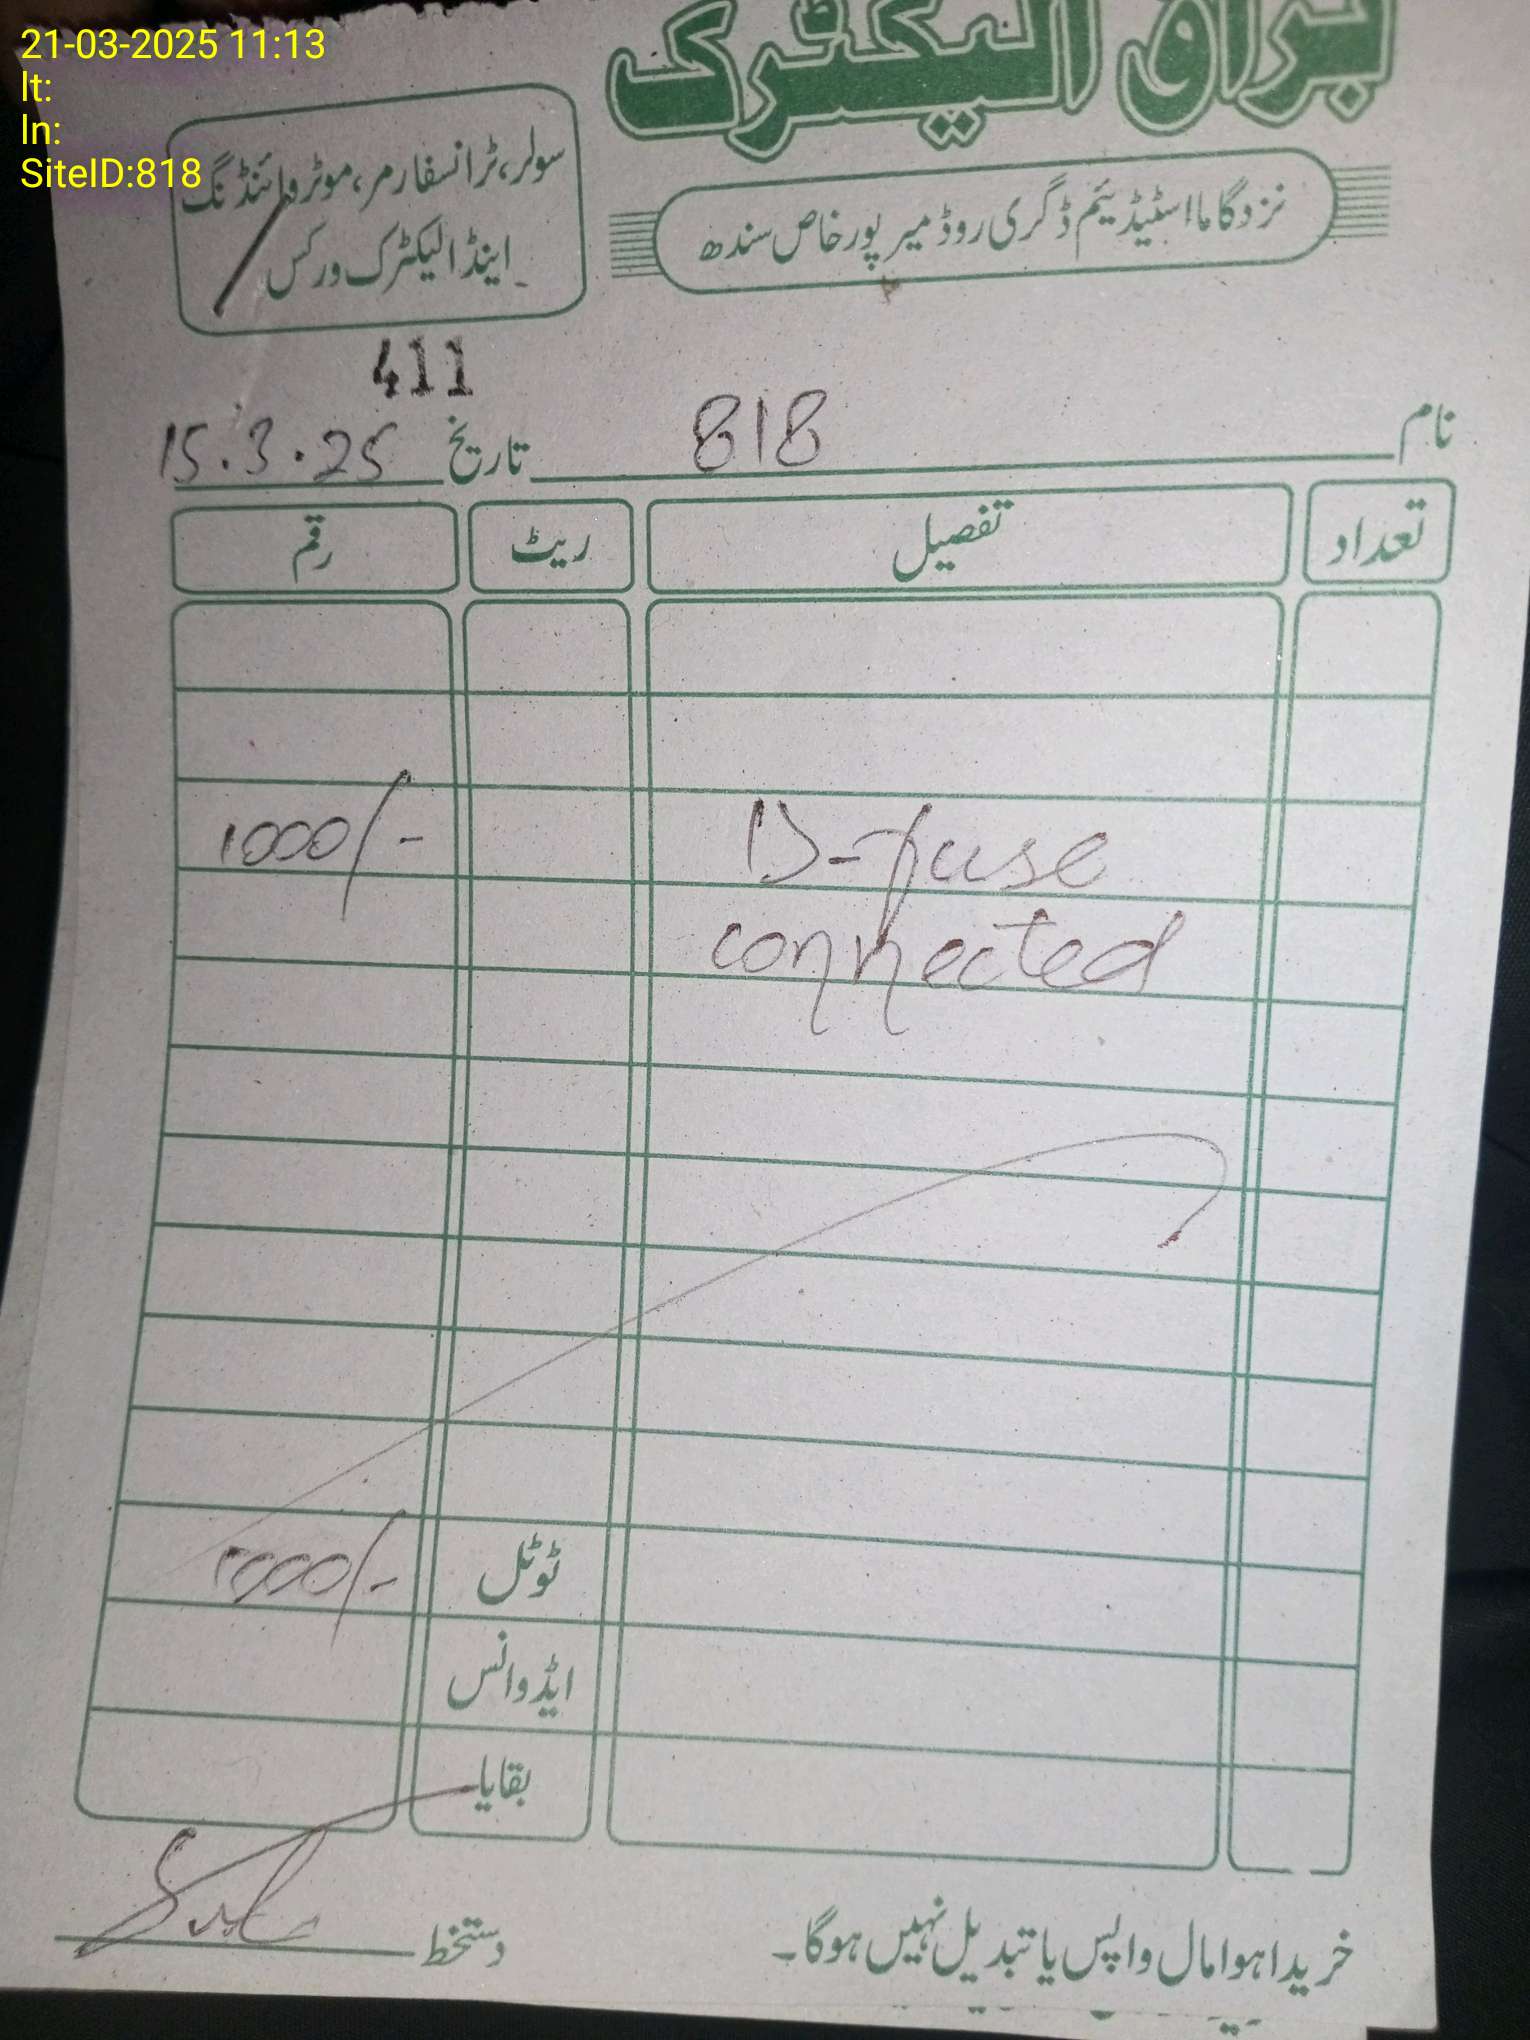 21-03-2025 11:13
lt:
ln:
SiteID:818
براق الیکٹرک
سولر، ٹرانسفارمر، موٹر وائنڈنگ
اینڈ الیکٹرک ورکس
نزد گاما اسٹیڈیئم ڈگری روڈ میرپورخاص سندھ
411
نام 818 تاریخ 15.3.25
تعداد تفصیل ریٹ رقم
D-fuse 1000/-
connected
ٹوٹل 1000/-
ایڈوانس
بقایا
خریدا ہوا مال واپس یا تبدیل نہیں ہوگا۔ دستخط